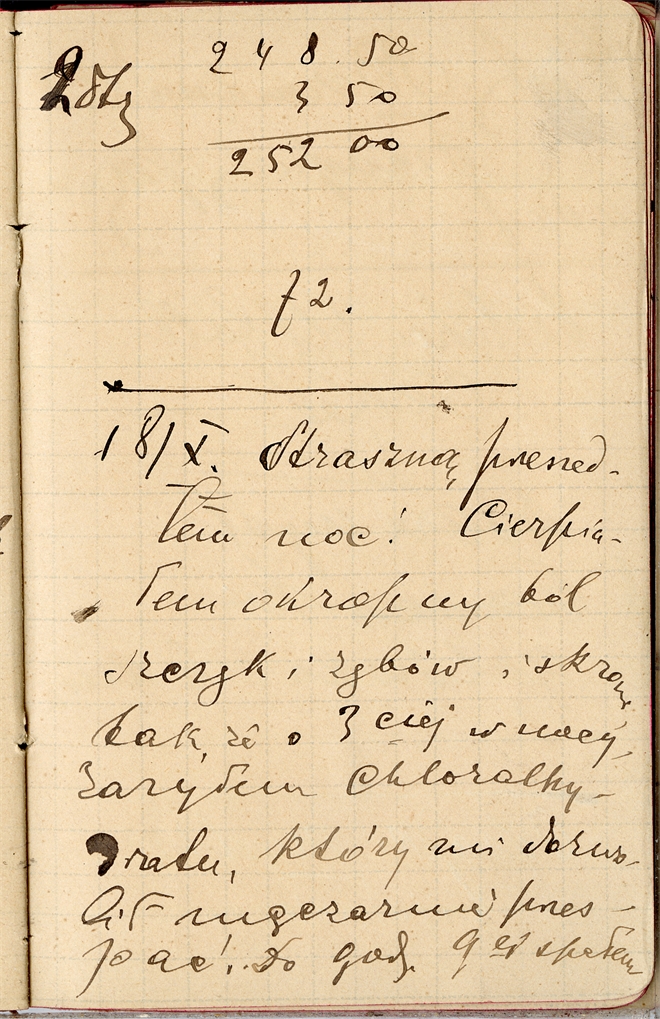 248.50
3 50
252 00
72.
18/X. Straszną przeszed-
łem noc! Cierpia-
łem okropny ból
szczęk i zębów i skroni
tak, że o 3 ciej w nocy
zażyłem Chloralhy-
dratu, który mi dozwo-
lił męczarnię przes-
pać! Do godz. 9 ej spałem